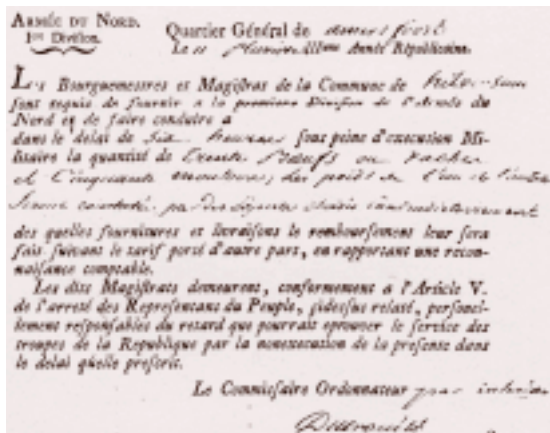 ARMÉE DU NORD.
1re Division.
Quartier Général de amersfoort
Le 11 Pluviose IIIme Année Républicaine.
Les Bourguemestres et Magistrats de la Commune de
sont requis de fournir a la premiere Division de l'Armée du
Nord et de faire conduire a
dans le delai de six heures sous peine d'execution Mi-
litaire la quantité de trente Bœufs ou vaches
et Cinquante moutons, des poids de l'un et l'autre
des quelles fournitures et livraisons le remboursement leur sera
fais suivant le tarif porté d'autre part, en rapportant une recon-
naissance comptable.
Les dits Magistrats demeurent, conformement a l'Article V.
de l'arreté des Representans du Peuple, cidessus relaté, personel-
lement responsables du retard que pourrait eprouver le service des
troupes de la Republique par la nonexecution de la presente dans
le delai qu'elle prescrit.
Le Commissaire Ordonnateur par interim